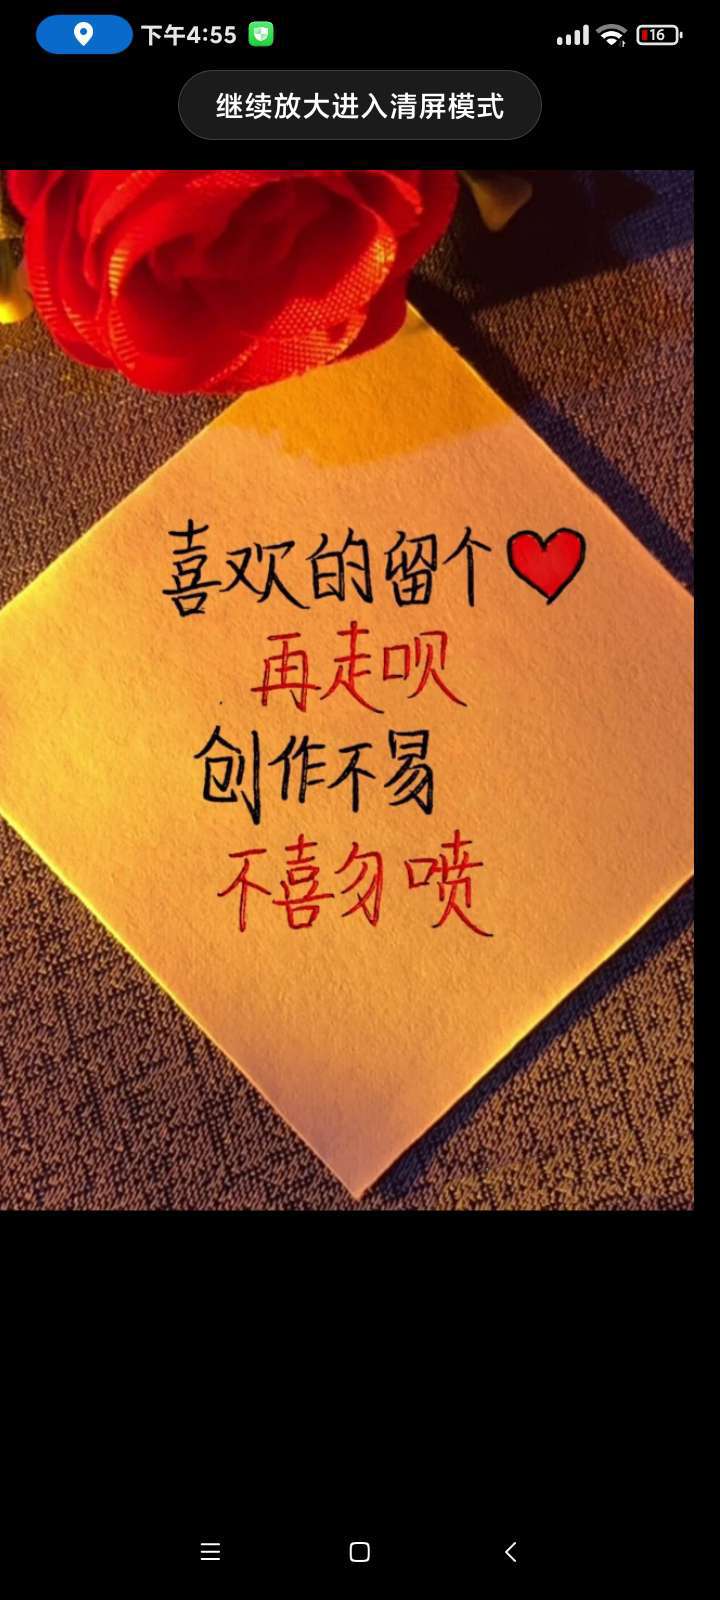 下午4:55
16
继续放大进入清屏模式
喜欢的留个❤
再走呗
创作不易
不喜勿喷